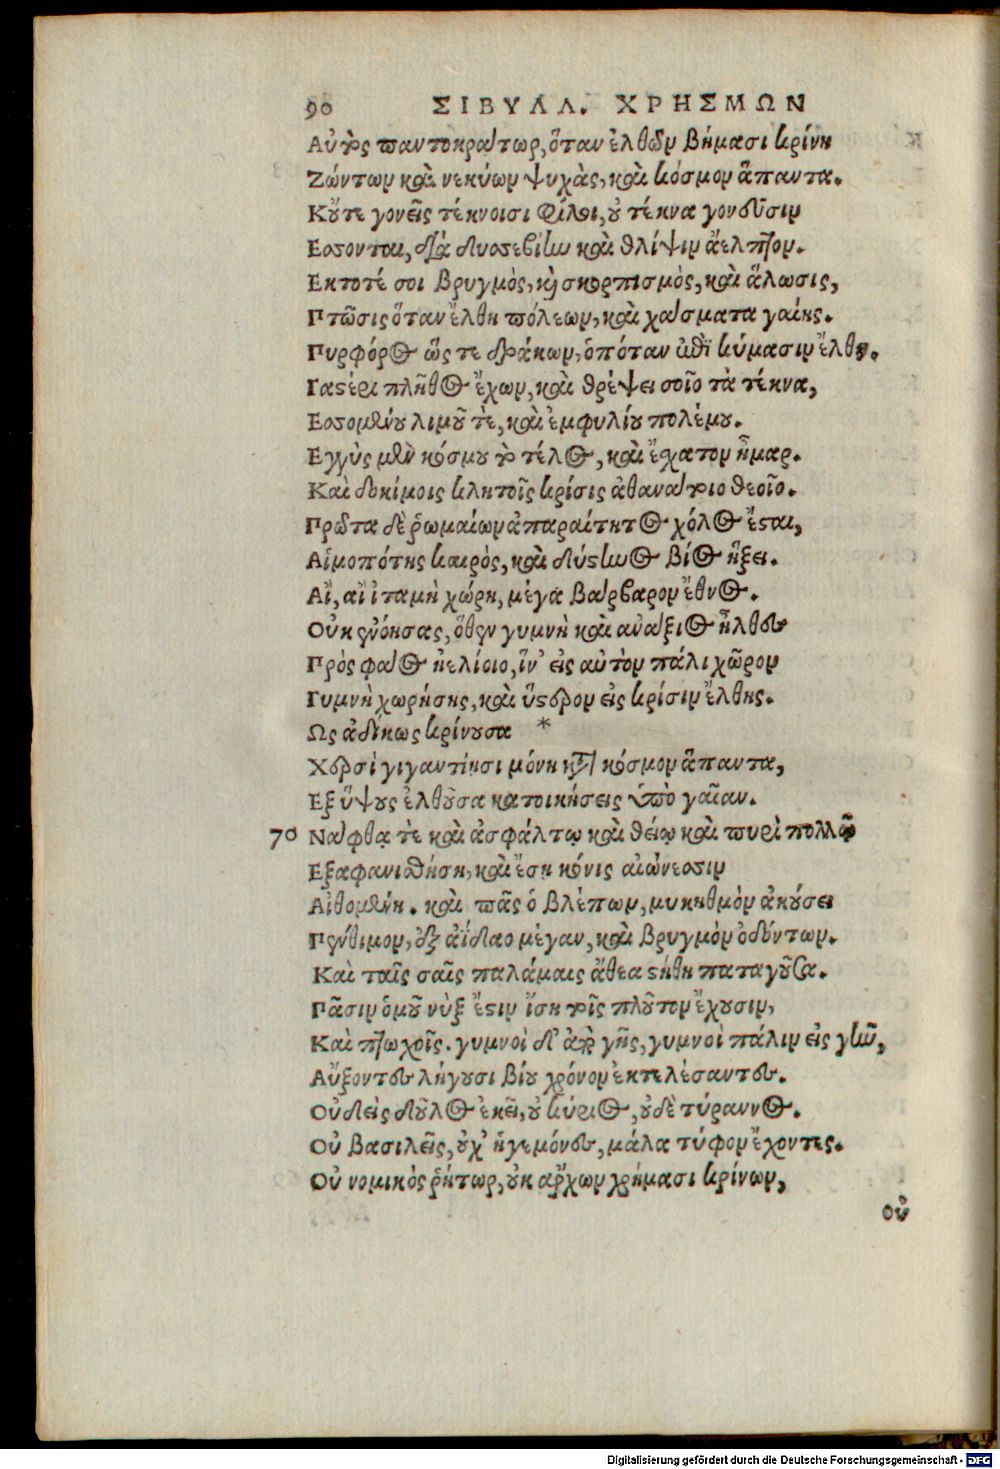 90 ΣΙΒΥΛΛ. ΧΡΗΣΜΩΝ
Αὐτὸς παντοκράτωρ, ὅταν ἐλθὼν βήμασι κρίνῃ
Ζώντων καὶ νεκύων ψυχὰς, καὶ κόσμον ἅπαντα.
Κοὔτε γονεῖς τέκνοισι φίλοι, οὐ τέκνα γονεῦσιν
Εσονται, διὰ δυσσεβίην καὶ θλίψιν ἄελπτον.
Εκτοτέ σοι βρυγμὸς, καὶ σκορπισμὸς, καὶ ἅλωσις,
Πτῶσις ὅταν ἔλθῃ πόλεων, καὶ χάσματα γαίης.
Πυρφόρος ὥς τε δράκων, ὁπόταν ἐπὶ κύμασιν ἔλθῃ.
Γαστέρι πλῆθος ἔχων, καὶ θρέψει σοῖο τὰ τέκνα,
Εσσομένου λιμοῦ τὲ, καὶ ἐμφυλίου πολέμου.
Εγγὺς μὲν κόσμου τὸ τέλος, καὶ ἔσχατον ἦμαρ.
Καὶ δοκίμοις κλητοῖς κρίσις ἀθανάτοιο θεοῖο.
Πρῶτα δὲ ῥωμαίων ἀπαραίτητος χόλος ἔσται,
Αἱμοπότης καιρὸς, καὶ δύστηνος βίος ἥξει.
Αἲ, αἲ ἰταμὴ χώρη, μέγα βάρβαρον ἔθνος.
Οὐκ ἐνόησας, ὅθεν γυμνὴ καὶ ἀνάξιος ἦλθες
Πρὸς φάος ἠελίοιο, ἵν' εἰς αὐτὸν πάλι χῶρον
Γυμνὴ χωρήσῃς, καὶ ὕστερον εἰς κρίσιν ἔλθῃς.
Ως ἀδίκως κρίνουσα *
Χερσὶ γιγαντίῃσι μόνη κατὰ κόσμον ἅπαντα,
Εξ ὕψους ἐλθοῦσα κατοικήσεις ὑπὸ γαῖαν.
70 Νάφθᾳ τὲ καὶ ἀσφάλτῳ καὶ θείῳ καὶ πυρὶ πολλῷ
Εξαφανισθήσῃ, καὶ ἔσῃ κόνις αἰώνεσσιν
Αἰθομένη. καὶ πᾶς ὁ βλέπων, μυκηθμὸν ἀκούσει
Πένθιμον, ἐξ ἀΐδαο μέγαν, καὶ βρυγμὸν ὀδόντων.
Καὶ ταῖς σαῖς παλάμαις ἄθεα στήθη παταγοῦσα.
Πᾶσιν ὁμοῦ νὺξ ἔστιν ἴση τοῖς πλοῦτον ἔχουσιν,
Καὶ πτωχοῖς. γυμνοὶ δ' ἀπὸ γῆς, γυμνοὶ πάλιν εἰς γῆν,
Αὔξοντες λήγουσι βίου χρόνον ἐκτελέσαντες.
Οὐδεὶς δοῦλος ἐκεῖ, οὐ κύριος, οὐδὲ τύραννος.
Οὐ βασιλεῖς, οὐχ' ἡγεμόνες, μάλα τύφον ἔχοντες.
Οὐ νομικὸς ῥήτωρ, οὐκ ἄρχων χρήμασι κρίνων,
οὐ
Digitalisierung gefördert durch die Deutsche Forschungsgemeinschaft - DFG